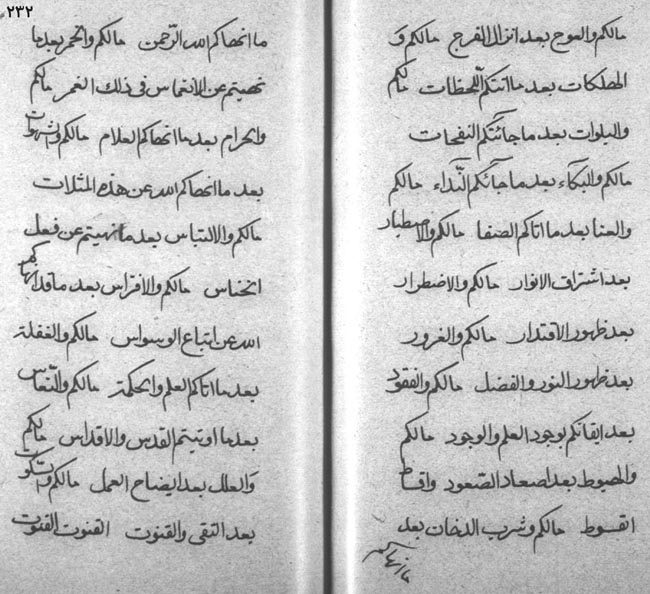 ٢٣٢
مالكم والعوج بعد انزال الفرج مالكم و
المهلكات بعد ما اتتكم اللحظات مالكم
والبلوات بعد ما جائتكم النفحات
مالكم والبكاء بعد ما جائكم النّداء مالكم
والعنا بعد ما اتاكم الصفا مالكم والاصطبار
بعد اشتراق الانوار مالكم والاضطرار
بعد ظهور الاقتدار مالكم والغرور
بعد ظهور النور والفضل مالكم والفقود
بعد ايقانكم بوجود العلم والوجود مالكم
والهبوط بعد اصعاد الصّعود واقساط
القسوط مالكم وشرب الدخان بعد
ما انهاكم
ما انهاكم الله الرّحمن مالكم والخمر بعد ما
نهيتم عن الانغماس فى ذلك الغمر مالكم
والحرام بعد ما انهاكم العلام مالكم والشهوات
بعد ما انهاكم الله عن هذه المثلات
مالكم والالتباس بعد ما نهيتم عن فعل
الخناس مالكم والافراس بعد ما قد انهاكم
الله عن اتباع الوسواس مالكم والغفلة
بعد ما اتاكم العلم والحكمة مالكم والنّعاس
بعد ما اوتيتم القدس والاقداس مالكم
والعلل بعد ايضاح العمل مالكم والسكوت
بعد التقى والقنوت القنوت القنوت